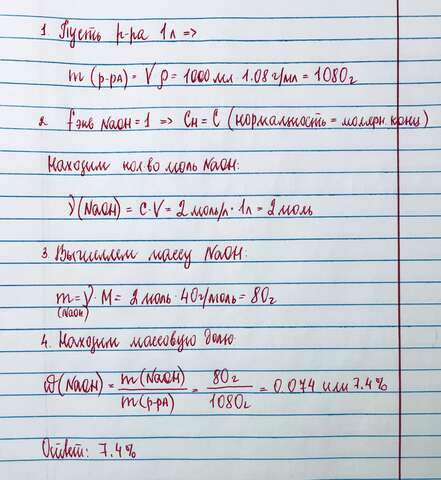 1. Пусть р-ра 1 л =>
m (р-ра) = V ρ = 1000 мл 1.08 г/мл = 1080 г
2. fэкв NaOH = 1 => Cн = C (нормальность = молярн. конц)
Находим кол во моль NaOH:
ν (NaOH) = C · V = 2 моль/л · 1 л = 2 моль
3. Вычисляем массу NaOH:
m = ν · M = 2 моль · 40 г/моль = 80 г
(NaOH)
4. Находим массовую долю
ω (NaOH) = m (NaOH) / m (р-ра) = 80 г / 1080 г = 0.074 или 7.4 %
Ответ: 7.4 %